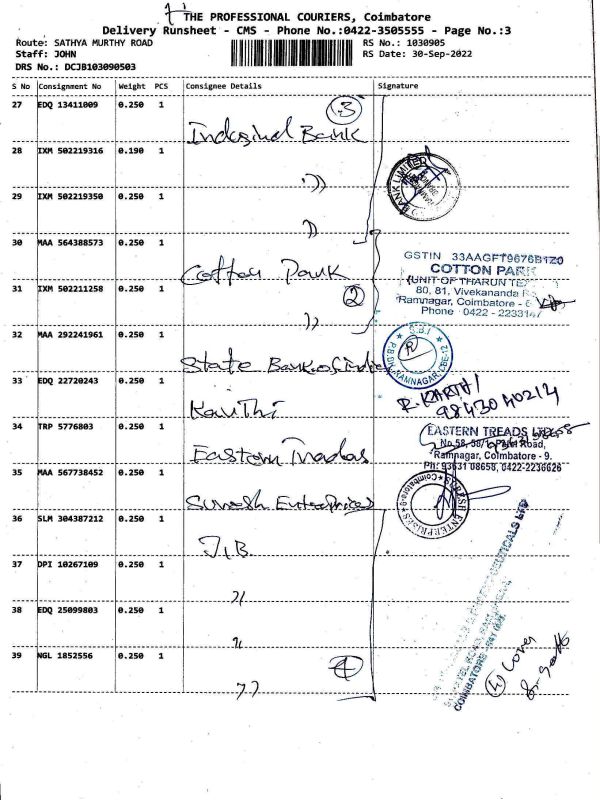 THE PROFESSIONAL COURIERS, Coimbatore
Delivery Runsheet - CMS - Phone No.:0422-3505555 - Page No.:3
Route: SATHYA MURTHY ROAD
RS No.: 1030905
Staff: JOHN
RS Date: 30-Sep-2022
DRS No.: DCJB103090503
S No Consignment No Weight PCS Consignee Details Signature
27 EDQ 13411009 0.250 1 3
Indusind Bank
28 IXM 502219316 0.190 1
"
BANK LIMITED
29 IXM 502219350 0.250 1
"
30 MAA 564388573 0.250 1
Cotton Park
GSTIN 33AAGFT9676B1Z0
COTTON PARK
31 IXM 502211258 0.250 1 2
"
(UNIT OF THARUN
80, 81, Vivekananda
Ramnagar, Coimbatore -
Phone : 0422 - 2233147
32 MAA 292241961 0.250 1
State Bank of India
S.B.I
RAMNAGAR, CBE-12
33 EDQ 22720243 0.250 1
Karthi
R. KARTHI
9843040214
34 TRP 5776803 0.250 1
Eastern Treads
EASTERN TREADS LTD
No.58, 58/1, Patel Road,
Ramnagar, Coimbatore - 9.
Ph: 93631 08658, 0422-2236626
35 MAA 567738452 0.250 1
Suresh Enterprices
SURESH ENTERPRISES
Coimbatore-9
36 SLM 304387212 0.250 1
J.B.
37 DPI 10267109 0.250 1
"
38 EDQ 25099803 0.250 1
"
39 NGL 1852556 0.250 1 4
"
COIMBATORE - 641
(4) Cover